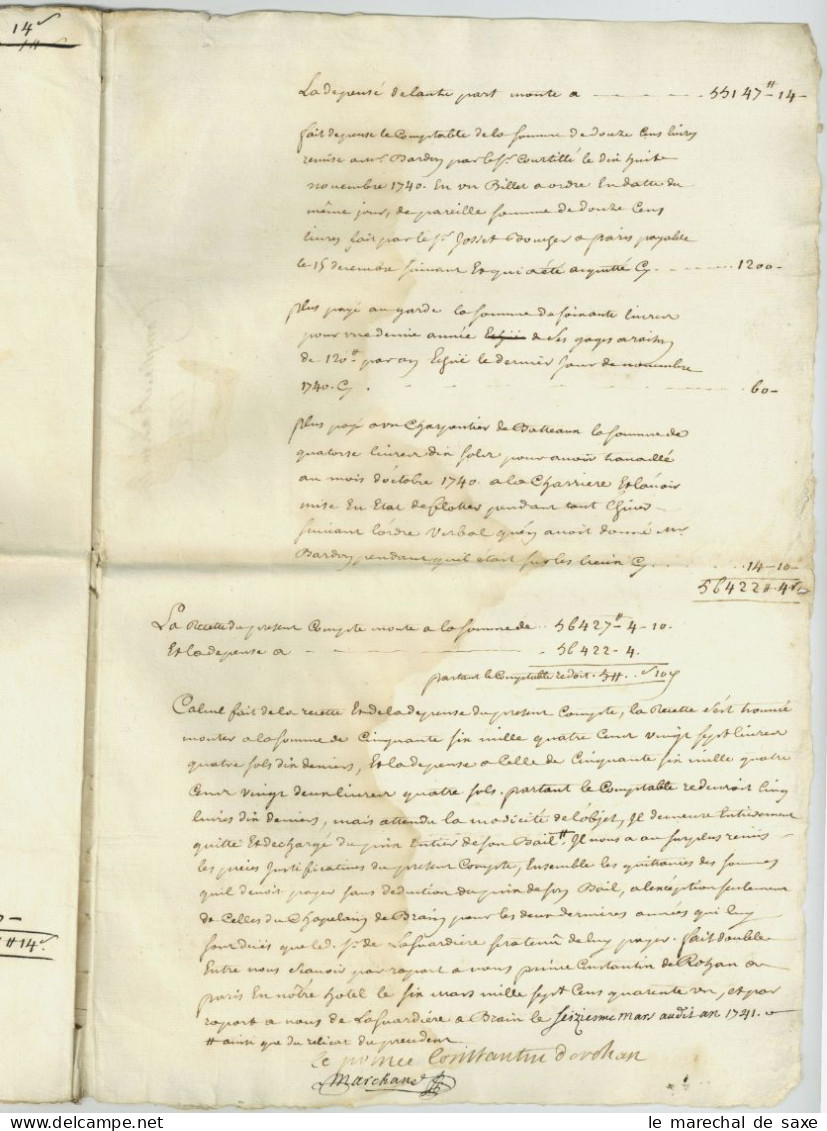 14
La depense de lautre part monte a 55147# 14
fait depense le Comptable de la somme de douze Cens livres
remise a mr. Bardon par le Sr. Courtillé le dix huit
novembre 1740. En un Billet a ordre En datte du
même jour, de pareille somme de douze Cens
livres fait par le Sr. Josset a paris payable
le 15 decembre suivant Et qui a été acquitté Cy 1200
plus payé au garde la somme de soixante livres
pour une demie année de ses gages a raison
de 120# par an Echüe le dernier Jour de novembre
1740. Cy 60
plus payé a un Charpentier de Batteaux la somme de
quatorse livres dix sols pour avoir travaillé
au mois d'octobre 1740. a la Charriere Et lavoir
mise En Etat de flotter pendant tout l'hiver
suivant l'ordre Verbal qu'en avoit donné Mr
Bardon pendant quil étoit sur les lieux Cy 14-10
56422# 4s
La Recette du present Compte monte a la somme de 56427# 4-10
Et la depense a 56422-4
partant le Comptable redoit 5# 10d
Calcul fait de la recette Et de la depense du present Compte, la Recette s'est trouvée
monter a la somme de Cinquante six mille quatre Cens vingt sept livres
quatre sols dix deniers, Et la depense a Celle de Cinquante six mille quatre
Cens vingt deux livres quatre sols. partant le Comptable redevroit Cinq
livres dix deniers, mais attendu la modicité de l'objet, Il demeure Entierement
quitte Et dechargé du prix Entier de son Bail# Il nous a au surplus remis
les pieces Justificatives du present Compte, Ensemble les quittances des sommes
quil devoit payer sans deduction du prix de son Bail, a l'exception seulement
de Celles du Chapelain de Brain pour les deux dernieres années qui luy
sont duës que led. Sr. de Laguardiere sera tenu de luy payer. fait double
Entre nous scavoir par raport a nous prince Constantin de Rohan a
paris En nôtre hôtel le six mars mille sept Cens quarente un, et par
raport a nous de Laguardiere a Brain le seizieme mars audit an 1741.
# ainsi que du relicat du precedent
le prince Constantin de rohan
Marchand
# 14s.
le marechal de saxe